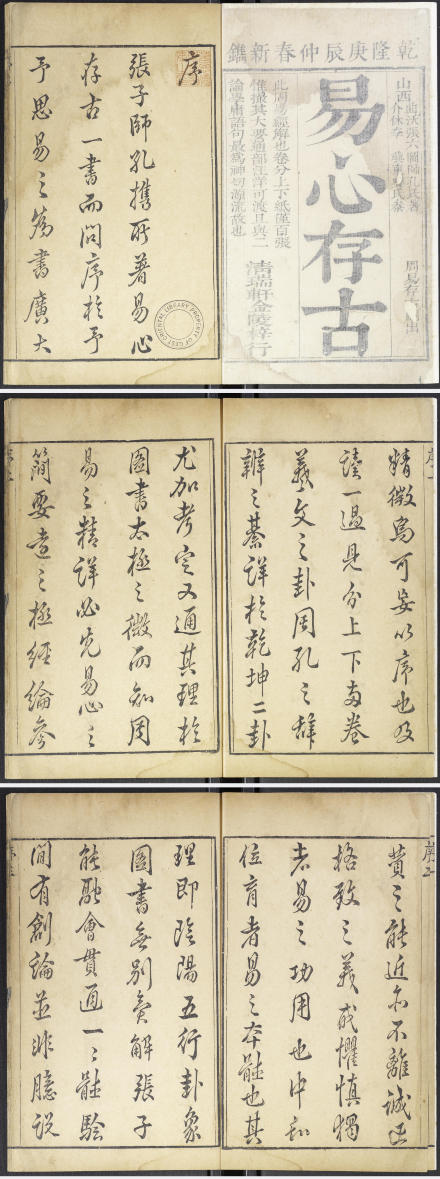 乾隆庚辰仲春新鐫
山西
曲沃張六圖師孔氏著
易心存古
此周易經解也卷分上下紙僅百張
惟撮其大要通部汪洋可渡且與二
論學庸語句最為神切源流故也
清瑞軒金陵梓行
序
張子師孔携所著易心
存古一書而問序於予
予思易之為書廣大
精微烏可妄以序也及
讀一過見分上下兩卷
羲文之卦周孔之辭
辨之綦詳於乾坤二卦
尤加考定又通其理於
圖書太極之微而知周
易之精詳必先易心之
簡要壹之極經綸參
贊之能近亦不離誠正
格致之義戒懼慎獨
者易之功用也中和
位育者易之本體也其
理即陰陽五行卦象
圖書無別奧解張子
能融會貫通一一體驗
間有創論並非臆說
PROPERTY OF GEST ORIENTAL LIBRARY